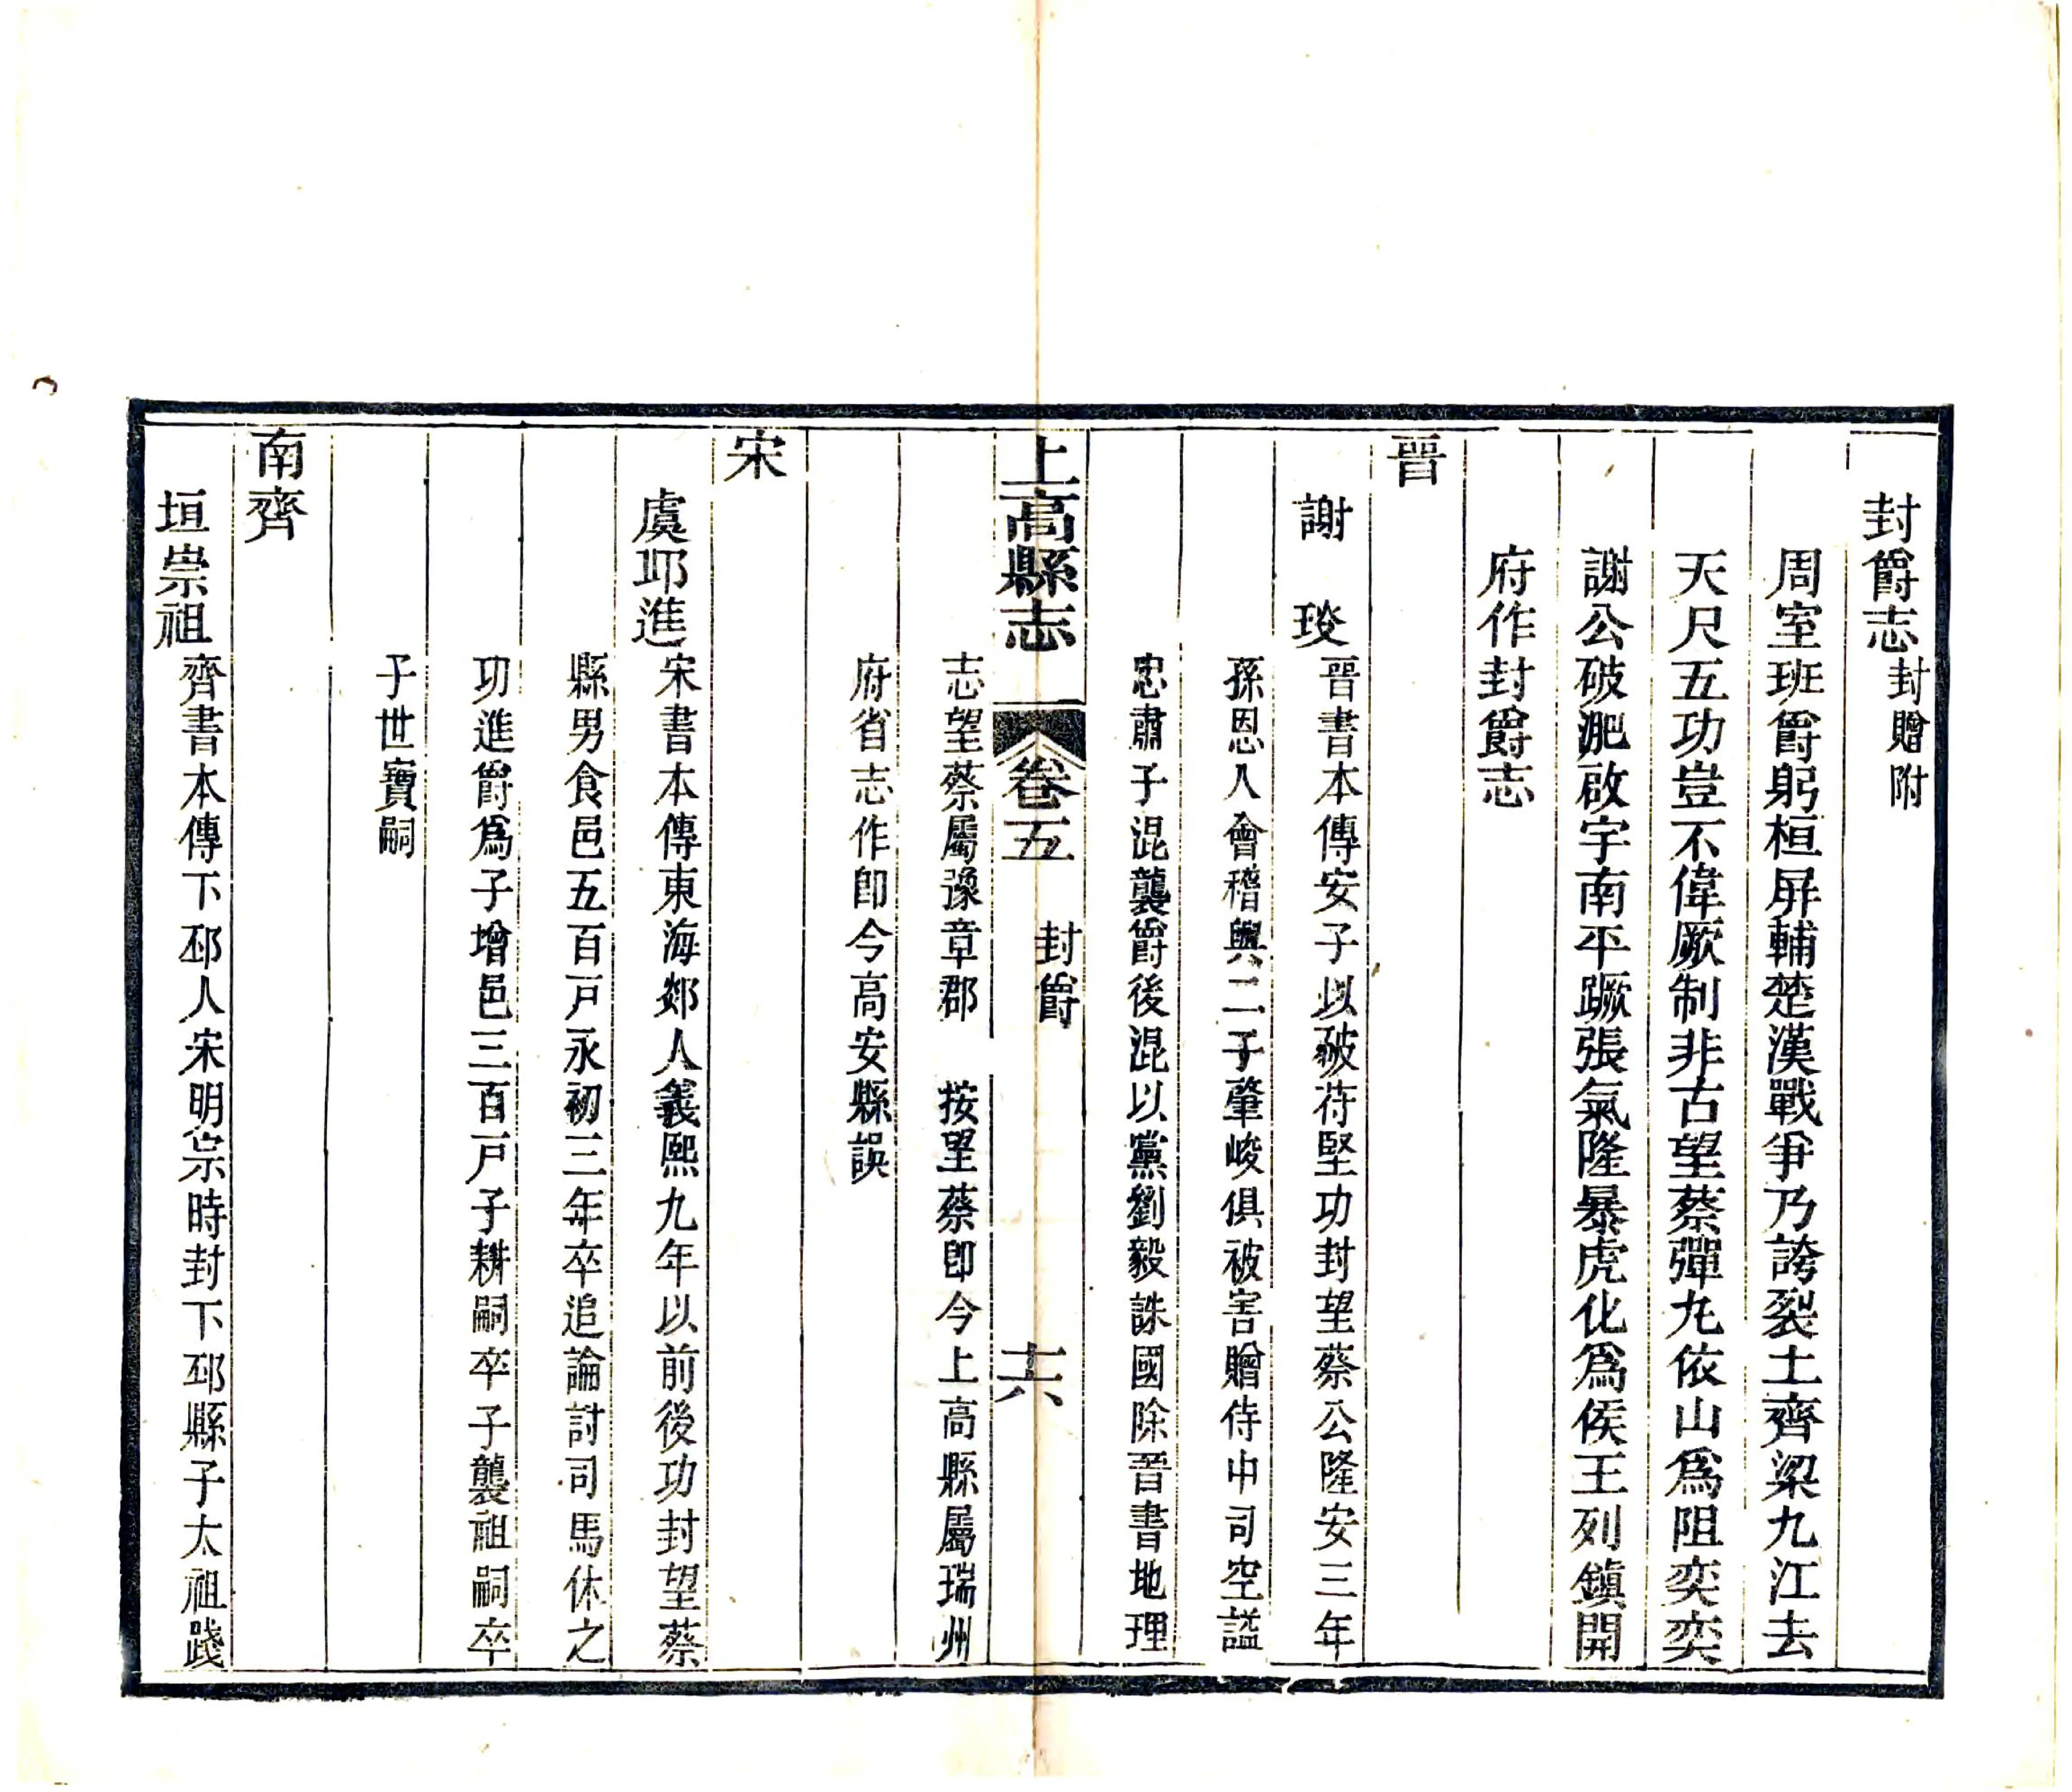 封爵志封贈附
周室班爵躬桓屏輔楚漢戰爭乃誇裂土齊梁九江去
天尺五功豈不偉厥制非古望蔡彈丸依山爲阻奕奕
謝公破淝啟宇南平蹶張氣隆暴虎化爲侯王列鎮開
府作封爵志
晉
謝琰晉書本傳安子以破苻堅功封望蔡公隆安三年
孫恩入會稽與二子肇峻俱被害贈侍中司空謚
忠肅子混襲爵後混以黨劉毅誅國除晉書地理
上高縣志 卷五 封爵 十六
志望蔡屬豫章郡 按望蔡卽今上高縣屬瑞州
府省志作卽今高安縣誤
宋
虞邱進宋書本傳東海郯人義熙九年以前後功封望蔡
縣男食邑五百戸永初三年卒追論討司馬休之
功進爵爲子增邑三百戸子耕嗣卒子襲祖嗣卒
子世寶嗣
南齊
垣崇祖齊書本傳下邳人宋明宗時封下邳縣子太祖踐